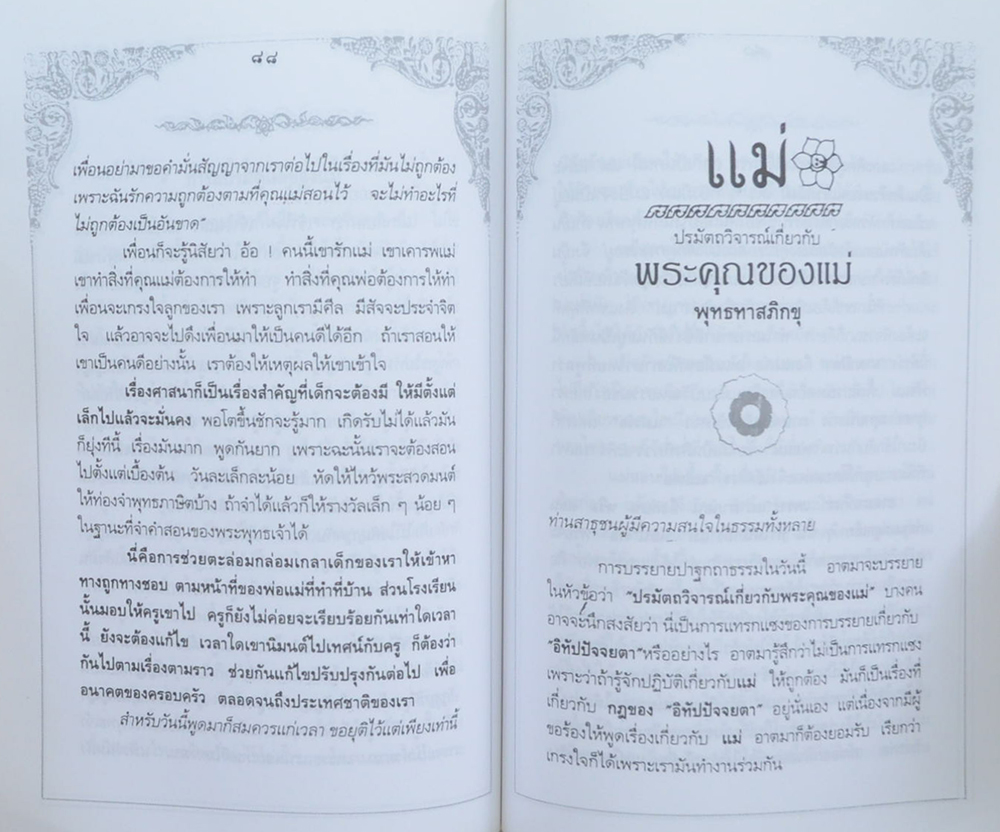 ๘๘
เพื่อนอย่ามาขอคำมั่นสัญญาจากเราต่อไปในเรื่องที่มันไม่ถูกต้อง
เพราะฉันรักความถูกต้องตามที่คุณแม่สอนไว้ จะไม่ทำอะไรที่
ไม่ถูกต้องเป็นอันขาด"
เพื่อนก็จะรู้นิสัยว่า อ้อ ! คนนี้เขารักแม่ เขาเคารพแม่
เขาทำสิ่งที่คุณแม่ต้องการให้ทำ ทำสิ่งที่คุณพ่อต้องการให้ทำ
เพื่อนจะเกรงใจลูกของเรา เพราะลูกเรามีศีล มีสัจจะประจำจิต
ใจ แล้วอาจจะไปดึงเพื่อนมาให้เป็นคนดีได้อีก ถ้าเราสอนให้
เขาเป็นคนดีอย่างนั้น เราต้องให้เหตุผลให้เขาเข้าใจ
เรื่องศาสนาก็เป็นเรื่องสำคัญที่เด็กจะต้องมี ให้มีตั้งแต่
เล็กไปแล้วจะมั่นคง พอโตขึ้นชักจะรู้มาก เกิดรับไม่ได้แล้วมัน
ก็ยุ่งทีนี้ เรื่องมันมาก พูดกันยาก เพราะฉะนั้นเราจะต้องสอน
ไปตั้งแต่เบื้องต้น วันละเล็กละน้อย หัดให้ไหว้พระสวดมนต์
ให้ท่องจำพุทธภาษิตบ้าง ถ้าจำได้แล้วก็ให้รางวัลเล็ก ๆ น้อย ๆ
ในฐานะที่จำคำสอนของพระพุทธเจ้าได้
นี่คือการช่วยตะล่อมกล่อมเกลาเด็กของเราให้เข้าหา
ทางถูกทางชอบ ตามหน้าที่ของพ่อแม่ที่ทำที่บ้าน ส่วนโรงเรียน
นั้นมอบให้ครูเขาไป ครูก็ยังไม่ค่อยจะเรียบร้อยกันเท่าใดเวลา
นี้ ยังจะต้องแก้ไข เวลาใดเขานิมนต์ไปเทศน์กับครู ก็ต้องว่า
กันไปตามเรื่องตามราว ช่วยกันแก้ไขปรับปรุงกันต่อไป เพื่อ
อนาคตของครอบครัว ตลอดจนถึงประเทศชาติของเรา
สำหรับวันนี้พูดมาก็สมควรแก่เวลา ขอยุติไว้แต่เพียงเท่านี้
แม่
ปรมัตถวิจารณ์เกี่ยวกับ
พระคุณของแม่
พุทธทาสภิกขุ
ท่านสาธุชนผู้มีความสนใจในธรรมทั้งหลาย
การบรรยายปาฐกถาธรรมในวันนี้ อาตมาจะบรรยาย
ในหัวข้อว่า "ปรมัตถวิจารณ์เกี่ยวกับพระคุณของแม่" บางคน
อาจจะนึกสงสัยว่า นี่เป็นการแทรกแซงของการบรรยายเกี่ยวกับ
"อิทัปปัจจยตา"หรืออย่างไร อาตมารู้สึกว่าไม่เป็นการแทรกแซง
เพราะว่าถ้ารู้จักปฏิบัติเกี่ยวกับแม่ ให้ถูกต้อง มันก็เป็นเรื่องที่
เกี่ยวกับ กฎของ "อิทัปปัจจยตา" อยู่นั่นเอง แต่เนื่องจากมีผู้
ขอร้องให้พูดเรื่องเกี่ยวกับ แม่ อาตมาก็ต้องยอมรับ เรียกว่า
เกรงใจก็ได้เพราะเรามันทำงานร่วมกัน